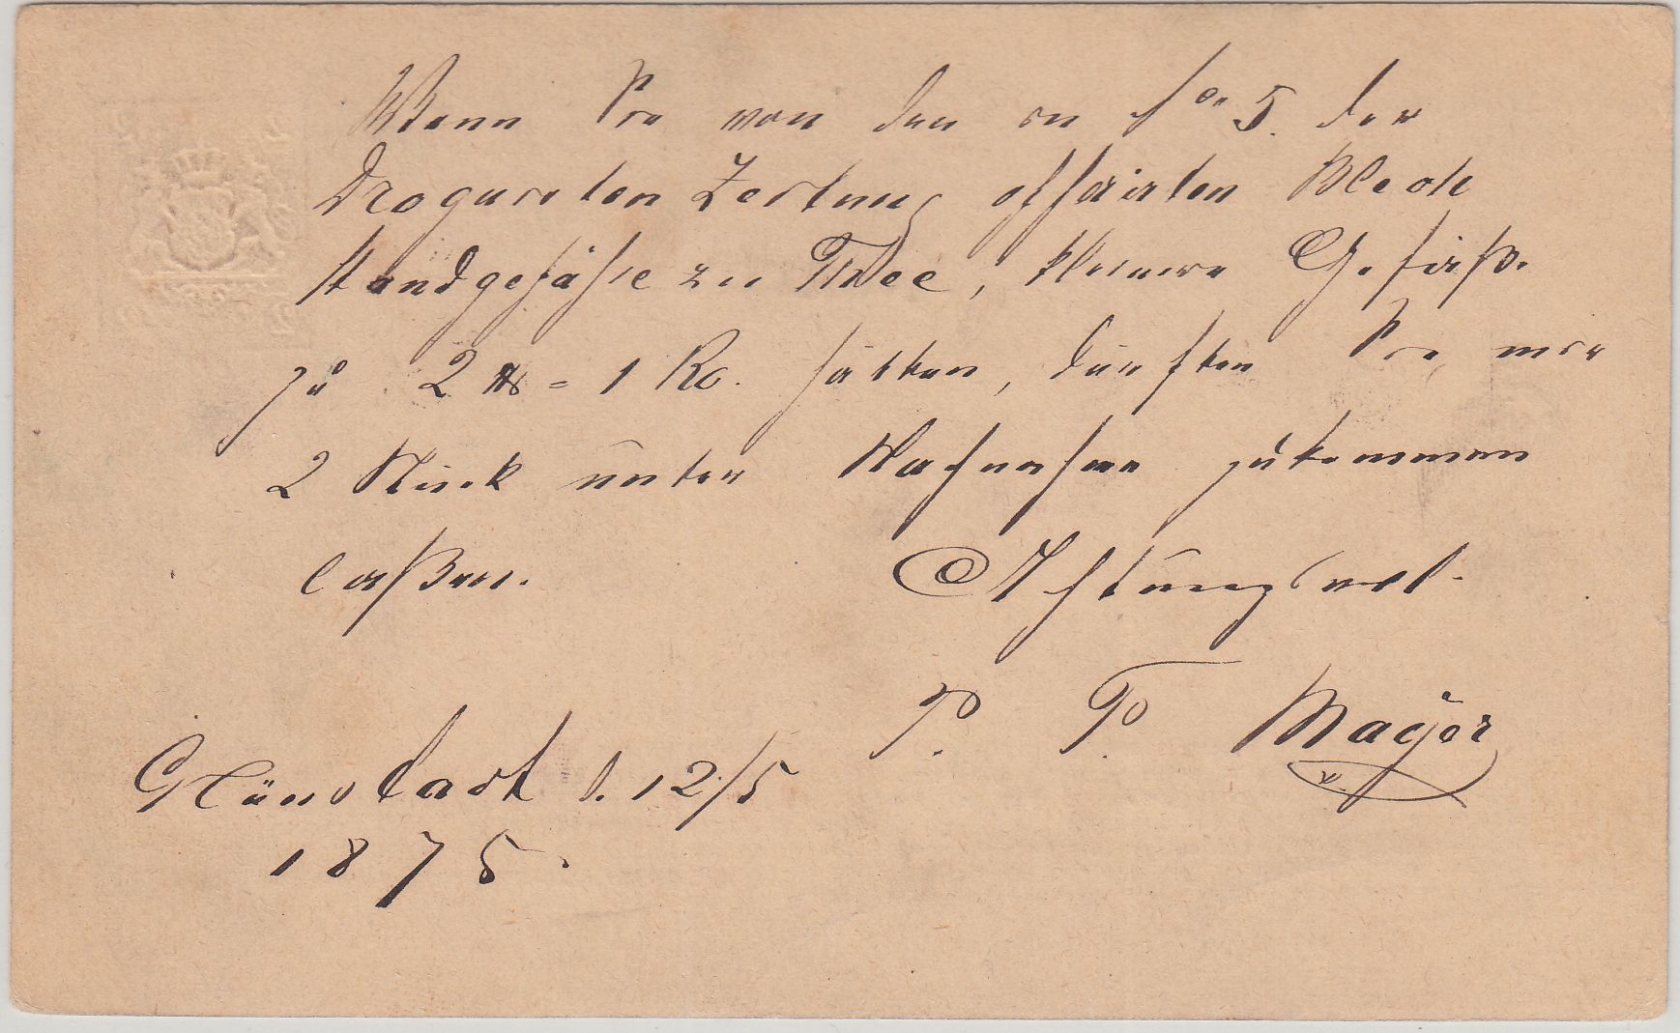 Wenn Sie von den in No 5. der
Droguisten Zeitung offerirten Blech
standgefäße zu Thee, kleinere Gefäße
zu 2 ℔ = 1 Ko. hätten, dürften Sie mir
2 Stück unter Nachnahme zukommen
laßen.
Achtungsvol.
P. P. Mayer
Grünstadt d. 12/5
1875.